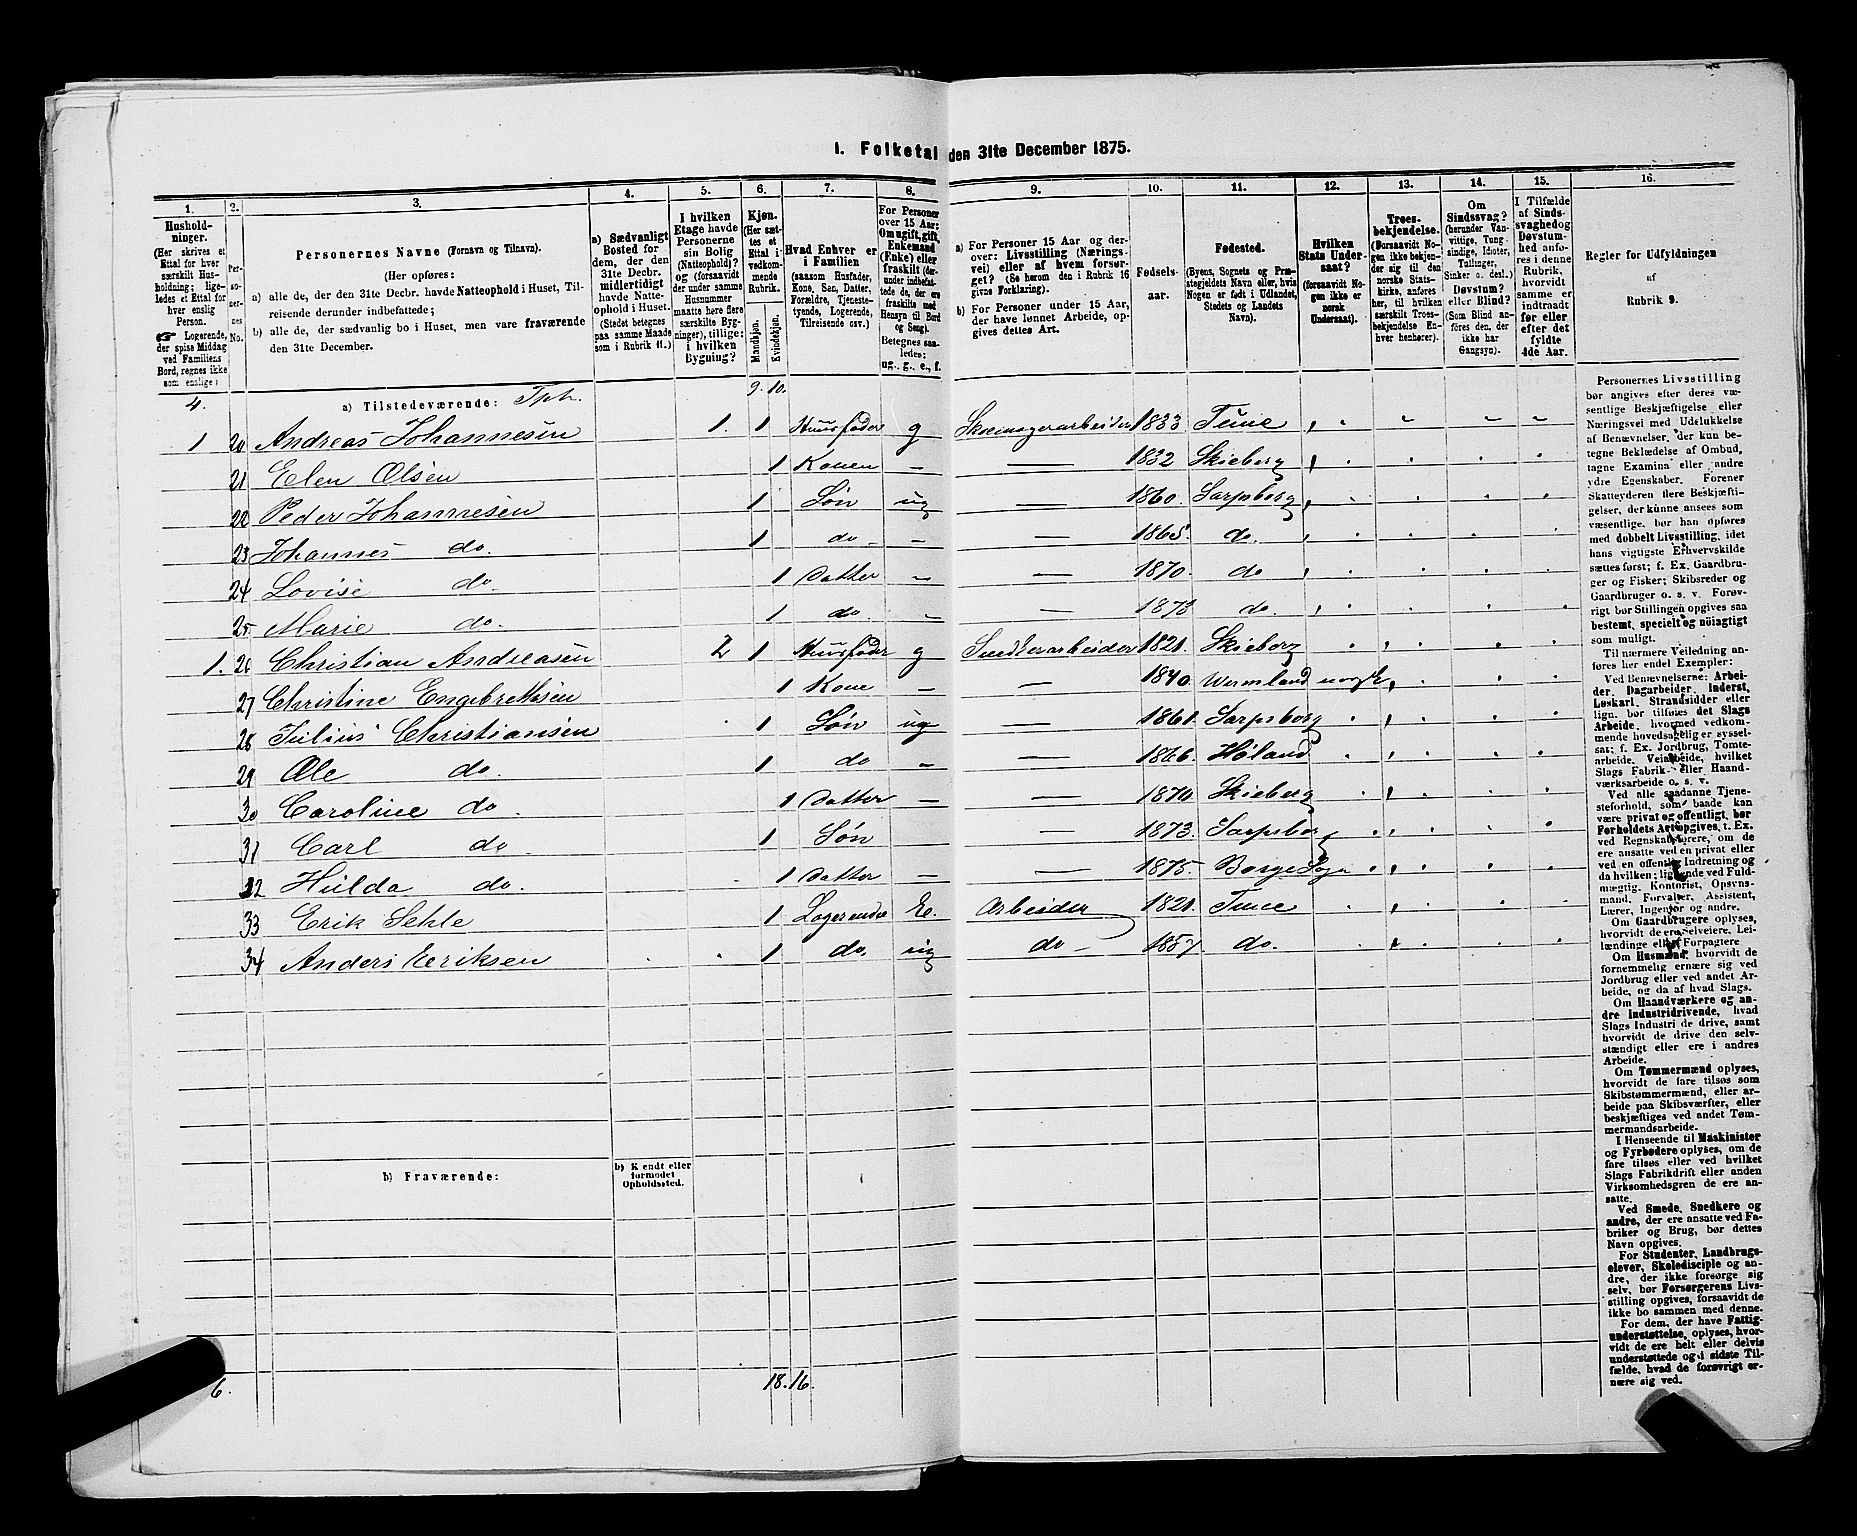 1. Folketal den 31te December 1875.
1. 2. 3. 4. 5. 6. 7. 8. 9. 10. 11. 12. 13. 14. 15. 16.
Hushold-
ninger.
(Her skrives et
Ettal for hver
særskilt Hus-
holdning; lige-
ledes et Ettal for
hver enslig
Person.
☞ Logerende,
der spise Middag
ved Familiens
Bord, regnes ikke
som enslige)
Per-
so-
ner-
nes
No.
Personernes Navne (Fornavn og Tilnavn).
(Her opføres:
a) alle de, der den 31te Decbr. havde Natteophold i Huset, Til-
reisende derunder indbefattede;
b) alle de, der sædvanlig bo i Huset, men vare fraværende
den 31te December.
a) Sædvanligt
Bosted for
dem, der den
31te Decbr.
midlertidigt
havde Natte-
ophold i Huset.
(Stedet betegnes
paa samme Maade
som i Rubrik 11.)
I hvilken
Etage havde
Personerne
sin Bolig
(Natteophold)?
og (forsaavidt
der under samme
Husnummer
maatte høre flere
særskilte Byg-
ninger), tillige:
i hvilken
Bygning?
Kjøn.
(Her sæt-
tes et
Ettal i
vedkom-
mende
Rubrik.
Mandkjøn.
Kvindekjøn.
Hvad Enhver er
i Familien
(saasom Husfader,
Kone, Søn, Datter,
Forældre, Tjeneste-
tyende, Logerende,
Tilreisende osv.)
For Personer
over 15 Aar:
Om ugift, gift,
Enkemand
(Enke) eller
fraskilt (der-
under indbefat-
tede de, der ere
fraskilte med
Hensyn til Bord
og Seng).
Betegnes saa-
ledes:
ug., g., e., f.
a) For Personer 15 Aar og der-
over: Livsstilling (Nærings-
vei) eller af hvem forsør-
get? (Se herom den i Rubrik 16
givne Forklaring).
b) For Personer under 15 Aar,
der have lønnet Arbeide, op-
gives dettes Art.
Fødsels-
aar.
Fødested.
(Byens, Sognets og Præ-
stegjeldets Navn eller, hvis
Nogen er født i Udlandet,
Stedets og Landets
Navn).
Hvilken
Stats Under-
saat?
(forsaavidt No-
gen ikke er
norsk
Undersaat).
Troes-
bekjendelse.
(Forsaavidt No-
gen ikke bekjen-
der sig til den
norske Stats-
kirke, anføres
her, til hvilken
særskilt Troes-
bekjendelse En-
hver henhører).
Om
Sindssvag?
(herunder Van-
vittige, Tung-
sindige, Idioter,
Tullinger,
Sinker o. desl.)
Døvstum?
eller Blind?
(Som Blind an-
føres den, der
ikke har
Gangsyn).
I Tilfælde
af Sinds-
svaghed og
Døvstum-
hed anføres
i denne
Rubrik,
hvorvidt
samme er
indtraadt
før eller
efter det
fyldte
4de Aar.
Regler for Udfyldningen
af
Rubrik 9.
4. a) Tilstedeværende: Tph. 9. 10.
1 20 Andreas Johannesen 1. 1 Huusfader g Skoemagerarbeider 1833 Tune
21 Elen Olsen 1 Konen — — 1832 Skieberg
22 Peder Johannesen 1 Søn ug — 1860. Sarpsborg
23 Johannes do. 1 do — — — 1865. do.
24 Lovise do 1 Datter — — 1870. do
25 Marie do. 1 do. — — 1873 do.
1. 26 Christian Andreasen 2 1 Huusfader g Snedkerarbeider 1821. Skieberg
27 Christine Engebretsen 1 Kone — — 1840. Wermland norsk
28 Julius Christiansen 1 Søn ug — 1861. Sarpsborg
29 Ole do. 1 do — — 1866. Høland
30 Caroline do 1 Datter — — 1870. Skieberg
31 Carl do 1 Søn — 1873. Sarpsborg
32 Hulda do. 1 Datter — — 1875. Borge Sogn
33 Erik Sehle 1 Logerende E. Arbeider 1821. Tune
34 Anders Eriksen 1 do. ug do — 1857. do.
b) Fraværende:
b) Kjendt eller
formodet
Opholdssted.
6. 18. 16.
Personernes Livsstilling
bør angives efter deres væ-
sentlige Beskjæftigelse eller
Næringsvei med Udelukkelse
af Benævnelser, der kun be-
tegne Beklædelse af Ombud,
tagne Examina eller andre
ydre Egenskaber. Forener
Skatteyderen flere Beskjæfti-
gelser, der kunne ansees som
væsentlige, bør han opføres
med dobbelt Livsstilling, idet
hans vigtigste Erhvervskilde
sættes først; f. Ex. Gaardbru-
ger og Fisker; Skibsreder og
Gaardbruger o. s. v. Forøv-
rigt bør Stillingen opgives saa
bestemt, specielt og nøiagtigt
som muligt.
Til nærmere Veiledning an-
føres her endel Exempler:
Ved Benævnelserne: Arbei-
der, Dagarbeider, Inderst,
Løskarl, Strandsidder eller
lign. bør tilføies det Slags
Arbeide, hvormed vedkom-
mende hovedsagelig er syssel-
sat; f. Ex. Jordbrug, Tomte-
arbeide, Veiarbeide, hvilket
Slags Fabrik- eller Haand-
værksarbeide o. s. v.
Ved alle saadanne Tjene-
steforhold, som baade kan
være privat og offentligt, bør
Forholdets Art opgives, t. Ex.
ved Regnskabsførere, om de
ere ansatte ved en privat eller
ved en offentlig Indretning og
da hvilken; lignende ved Fuld-
mægtig, Kontorist, Opsyns-
mand, Forvalter, Assistent,
Lærer, Ingeniør og andre.
Om Gaardbrugere oplyses,
hvorvidt de ere Selveiere, Lei-
lændinge eller Forpagtere
Om Husmænd, hvorvidt de
fornemmelig ernære sig ved
Jordbrug eller ved andet Ar-
beide, og da af hvad Slags.
Om Haandværkere og an-
dre Industridrivende, hvad
Slags Industri de drive, samt
hvorvidt de drive den selv-
stændigt eller ere i andres
Arbeide.
Om Tømmermænd oplyses,
hvorvidt de fare tilsøs som
Skibstømmermænd, eller ar-
beide paa Skibsværfter, eller
beskjæftiges ved andet Tøm-
mermandsarbeide.
I Henseende til Maskinister
og Fyrbødere oplyses, om de
fare tilsøs eller ved hvilket
Slags Fabrikdrift eller anden
Virksomhedsgren de ere an-
satte.
Ved Smede, Snedkere og
andre, der ere ansatte ved Fa-
briker og Brug, bør dettes
Navn opgives.
For Studenter, Landbrugs-
elever, Skoledisciple og an-
dre, der ikke forsørge sig
selv, bør Forsørgerens Livs-
stilling opgives, forsaavidt de
ikke bo sammen med denne.
For dem, der have Fattig-
understøttelse, oplyses, hvor-
vidt de ere helt eller delvis
understøttede og i sidste Til-
fælde, hvad de forøvrigt er-
nære sig ved.